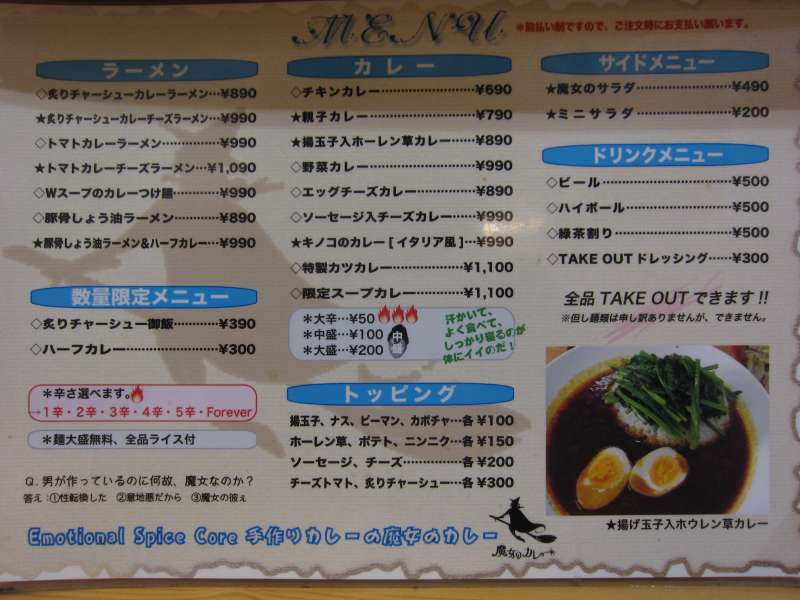 MENU
*前払い制ですので、ご注文時にお支払い願います。
ラーメン
◇炙りチャーシューカレーラーメン…¥890
★炙りチャーシューカレーチーズラーメン…¥990
◇トマトカレーラーメン……………¥990
★トマトカレーチーズラーメン…¥1,090
◇Wスープのカレーつけ麺…………¥990
◇豚骨しょう油ラーメン…………¥890
★豚骨しょう油ラーメン&ハーフカレー…¥990
数量限定メニュー
◇炙りチャーシュー御飯…………¥390
◇ハーフカレー……………………¥300
*辛さ選べます。
→1辛・2辛・3辛・4辛・5辛・Forever
*麺大盛無料、全品ライス付
Q. 男が作っているのに何故、魔女なのか?
答え:①性転換した ②意地悪だから ③魔女の彼ぇ
カレー
◇チキンカレー……………………¥690
★親子カレー………………………¥790
★揚玉子入ホーレン草カレー……¥890
◇野菜カレー………………………¥990
◇エッグチーズカレー……………¥890
◇ソーセージ入チーズカレー……¥990
★キノコのカレー[イタリア風]…¥990
◇特製カツカレー…………………¥1,100
◇限定スープカレー………………¥1,100
*大辛…¥50
*中盛…¥100
中盛
*大盛…¥200
汗かいて、
よく食べて、
しっかり寝るのが
体にイイのだ!
トッピング
揚玉子、ナス、ピーマン、カボチャ…各¥100
ホーレン草、ポテト、ニンニク…各¥150
ソーセージ、チーズ………………各¥200
チーズトマト、炙りチャーシュー…各¥300
サイドメニュー
★魔女のサラダ……………………¥490
★ミニサラダ………………………¥200
ドリンクメニュー
◇ビール……………………………¥500
◇ハイボール………………………¥500
◇緑茶割り…………………………¥500
◇TAKE OUTドレッシング……¥300
全品 TAKE OUT できます!!
※但し麺類は申し訳ありませんが、できません。
★揚げ玉子入ホウレン草カレー
Emotional Spice Core 手作りカレーの魔女のカレー
魔女のカレー